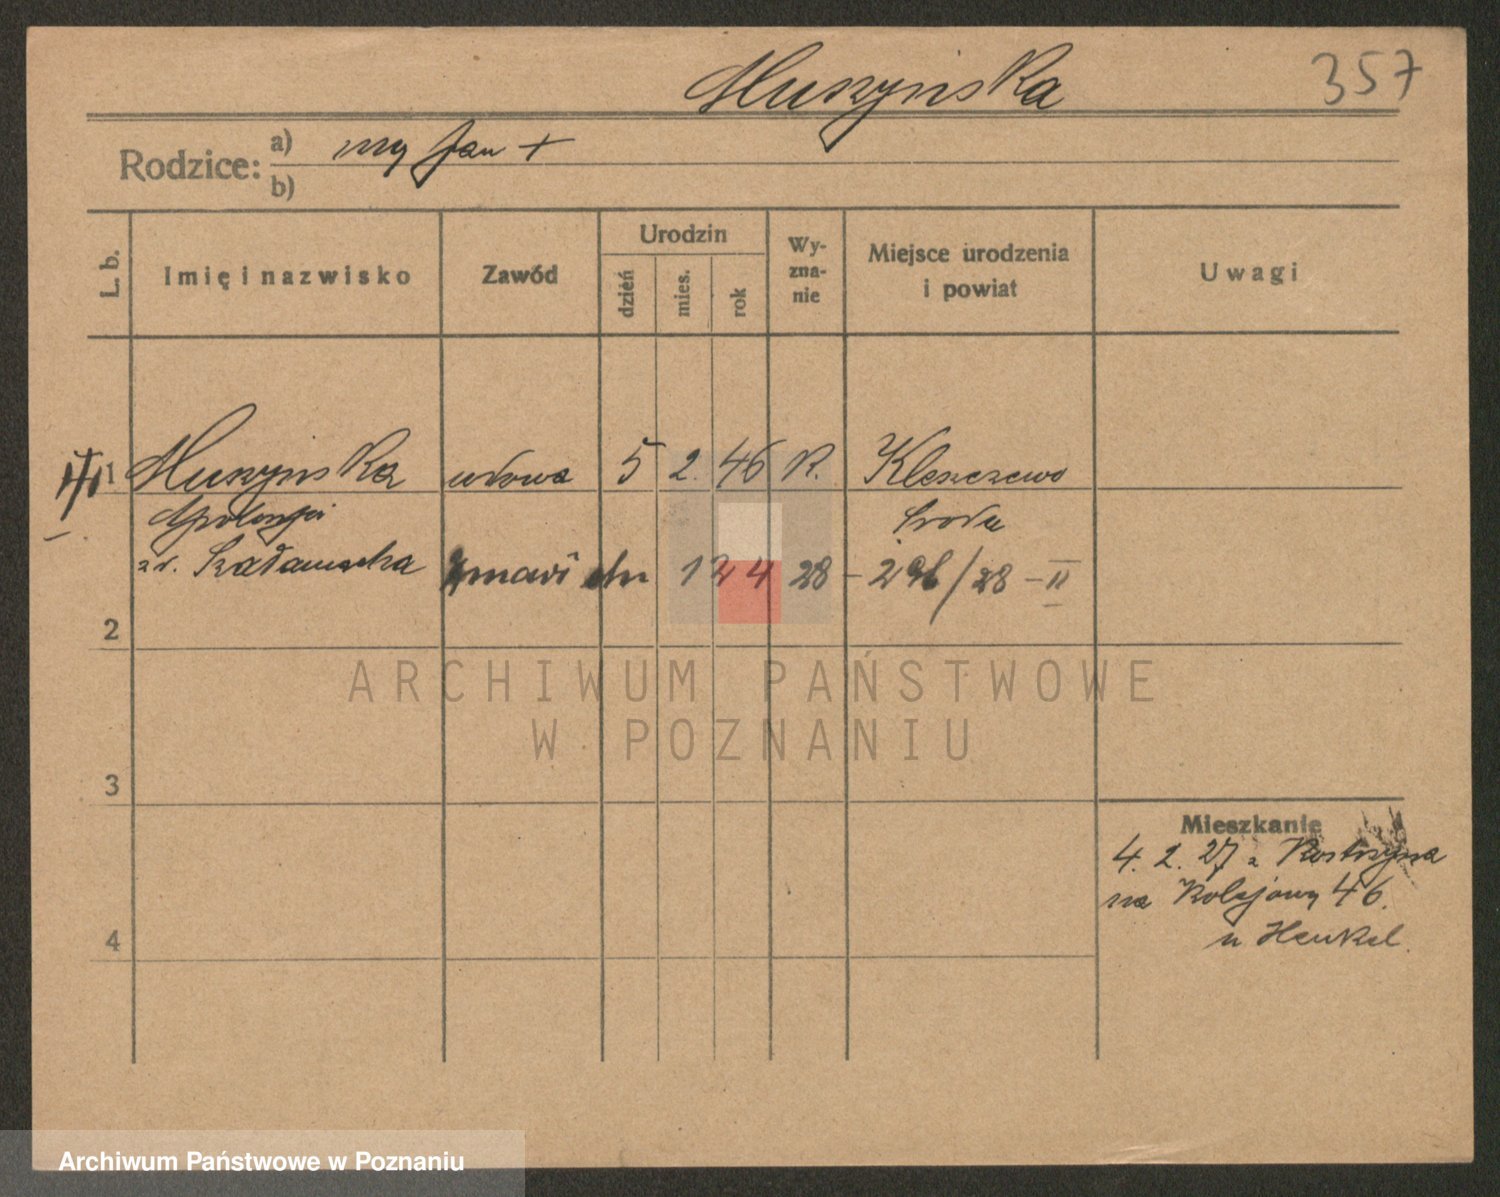 Muszyńska
357
Rodzice: a) mą Jan +
b)
L. b. Imię i nazwisko Zawód Urodzin dzień mies. rok Wy-zna-nie Miejsce urodzenia i powiat Uwagi
1 Muszyńska wdowa 5 2. 46 R. Kleszczewo
Apolonja Środa
zd. Szadamacha zmarł dn 12 4 28 - 296/28 - II
2
ARCHIWUM PAŃSTWOWE
W POZNANIU
3
Mieszkanie
4. 2. 27 z Kostrzyna
na Kolejową 46.
u Henkel.
4
Archiwum Państwowe w Poznaniu